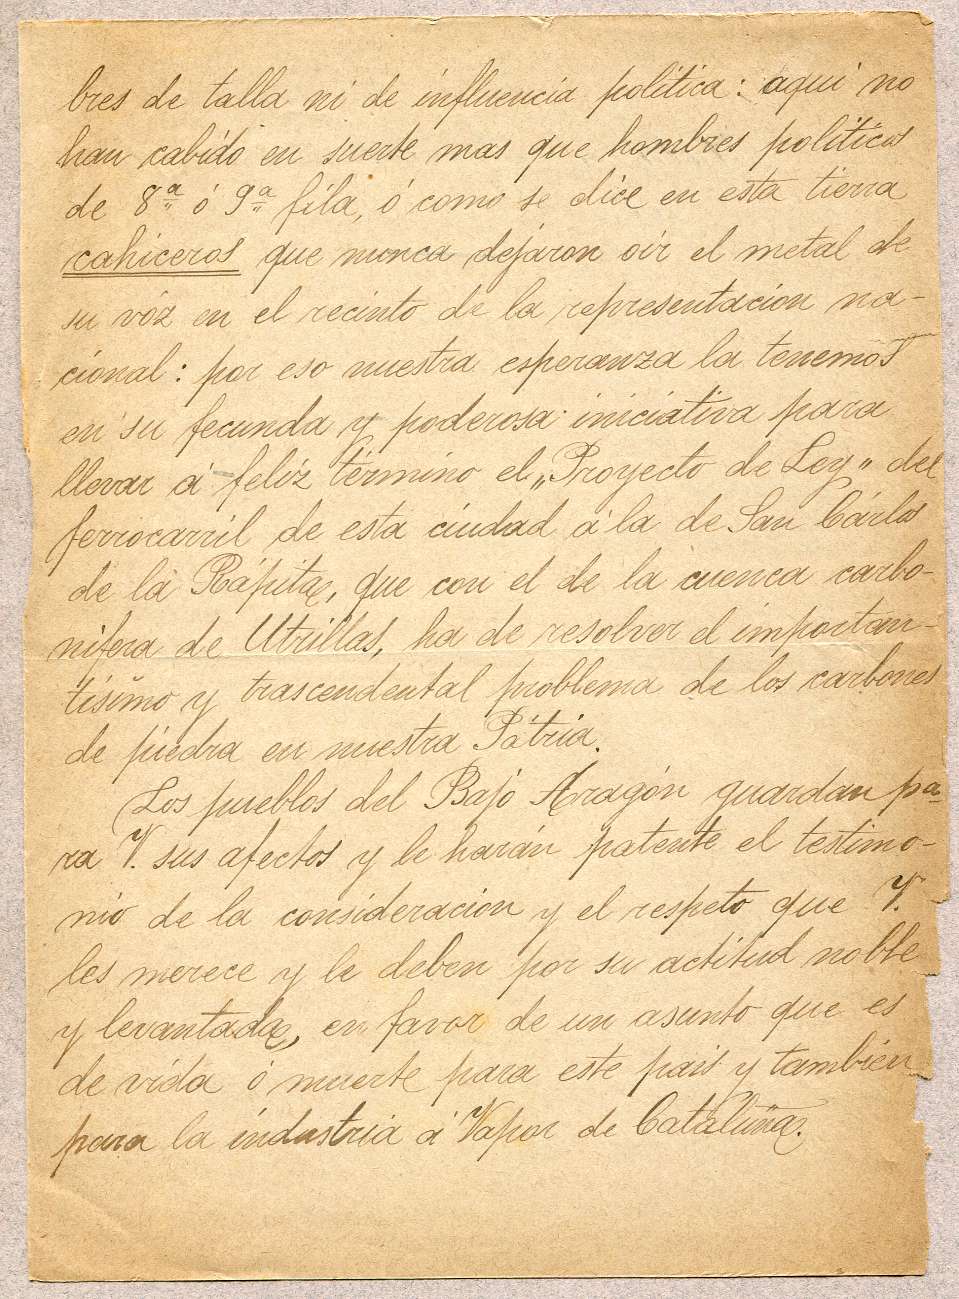 bres de talla ni de influencia política: aqui no
han cabido en suerte mas que hombres políticos
de 8ª ó 9ª fila, ó como se dice en esta tierra
cahiceros que nunca dejaron oir el metal de
su vóz en el recinto de la representacion na-
cional: por eso nuestra esperanza la tenemos
en su fecunda y poderosa iniciativa para
llevar á felíz término el „Proyecto de Ley” del
ferrocarril de esta ciudad á la de San Cárlos
de la Rápita, que con el de la cuenca carbo-
nifera de Utrillas, ha de resolver el importan-
tísimo y trascendental problema de los carbones
de piedra en nuestra Pátria.
Los pueblos del Bajo Aragón guardan pa-
ra V. sus afectos y le harán patente el testimo-
nio de la consideracion y el respeto que V.
les merece y le deben por su actitud noble
y levantada, en favor de un asunto que es
de vida ó muerte para este pais y tambien
para la industria á Vapor de Cataluña.